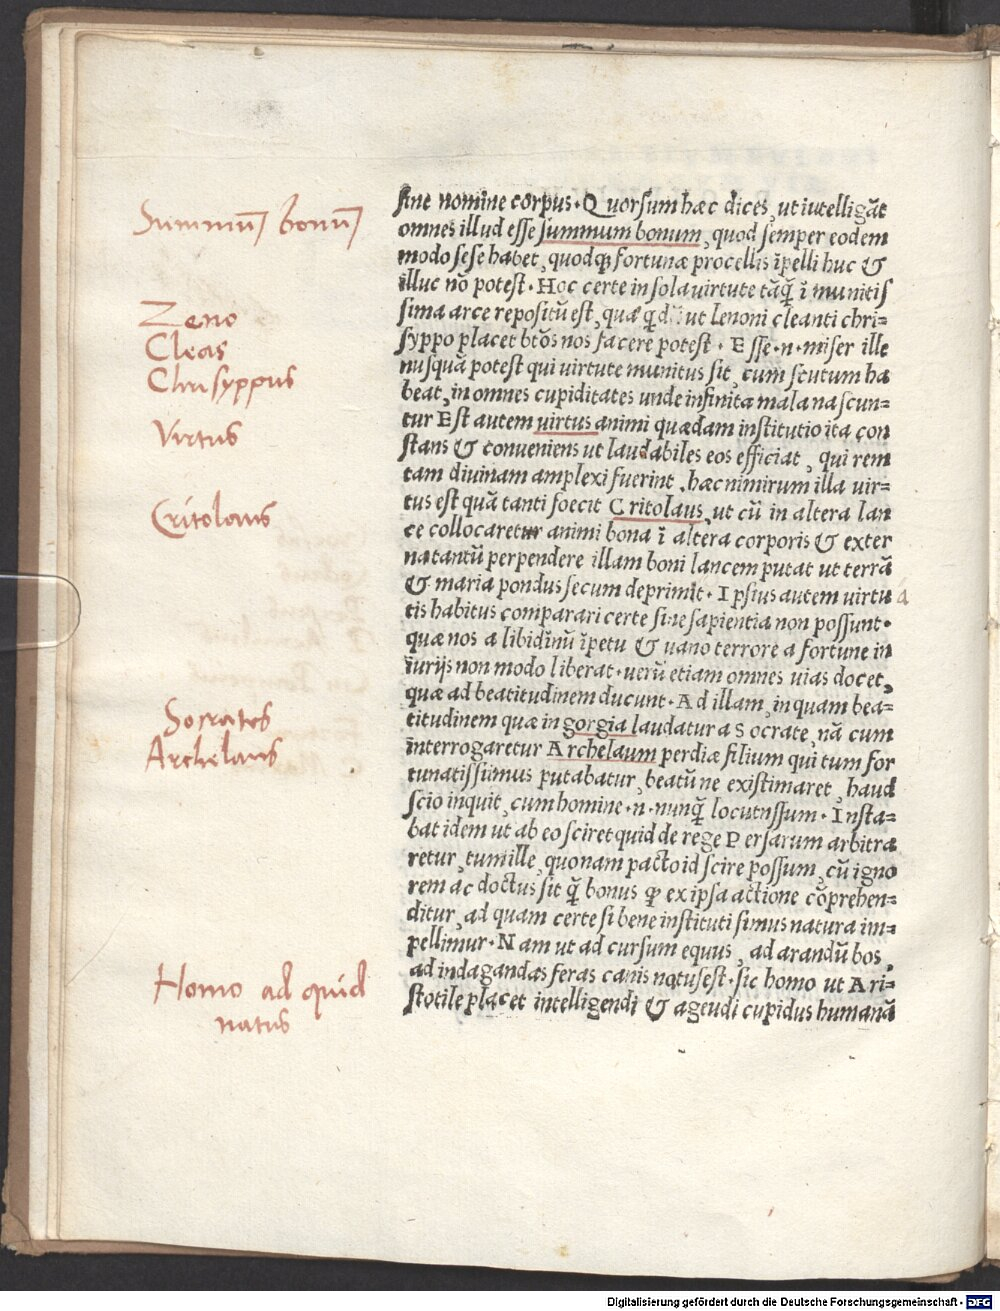 Summū bonū
Zeno
Cleas
Chrisyppus
Virtus
Critolaus
Socrates
Archelaus
Homo ad quid
natus
sine nomine corpus. Quorsum hæc dices, ut iutelligāt
omnes illud esse summum bonum, quod semper eodem
modo sese habet, quodq; fortunæ procellis īpelli huc &
illuc nō potest. Hoc certe in sola uirtute tāq̄ ī munitis
sima arce repositū est, quæ ut lenoni cleanti chri=
syppo placet btōs nos facere potest. Esse .n. miser ille
nusquā potest qui uirtute munitus sit, cum scutum ha
beat, in omnes cupiditates unde infinita mala nascun=
tur Est autem uirtus animi quædam institutio ita con
stans & conueniens ut laudabiles eos efficiat, qui rem
tam diuinam amplexi fuerint, hæc nimirum illa uir=
tus est quā tanti foecit Critolaus, ut cū in altera lan
ce collocaretur animi bona ī altera corporis & exter
na tantū perpendere illam boni lancem putat ut terrā
& maria pondus secum deprimit. Ipsius autem uirtu
tis habitus comparari certe sine sapientia non possunt.
quæ nos a libidinū īpetu & uano terrore a fortune in
iurijs non modo liberat. uerū etiam omnes uias docet,
quæ ad beatitudinem ducunt. Ad illam, inquam bea=
titudinem quæ in gorgia laudatur a Socrate, nā cum
interrogaretur Archelaum perdiæ filium qui tum for
tunatissimus putabatur, beatū ne existimaret, haud
scio inquit, cum homine .n. nunq̄ locutus sum. Insta=
bat idem ut ab eo sciret quid de rege Persarum arbitra
retur, tum ille, quonam pacto id scire possum, cū igno
rem ac doctus sit q̄ bonus q; ex ipsa actione cōprehen=
ditur, ad quam certe si bene instituti simus natura im=
pellimur. Nam ut ad cursum equus, ad arandū bos,
ad indagandas feras canis natus est. sic homo ut Ari=
stotile placet intelligendi & ageudi cupidus humanā
Digitalisierung gefördert durch die Deutsche Forschungsgemeinschaft - DFG